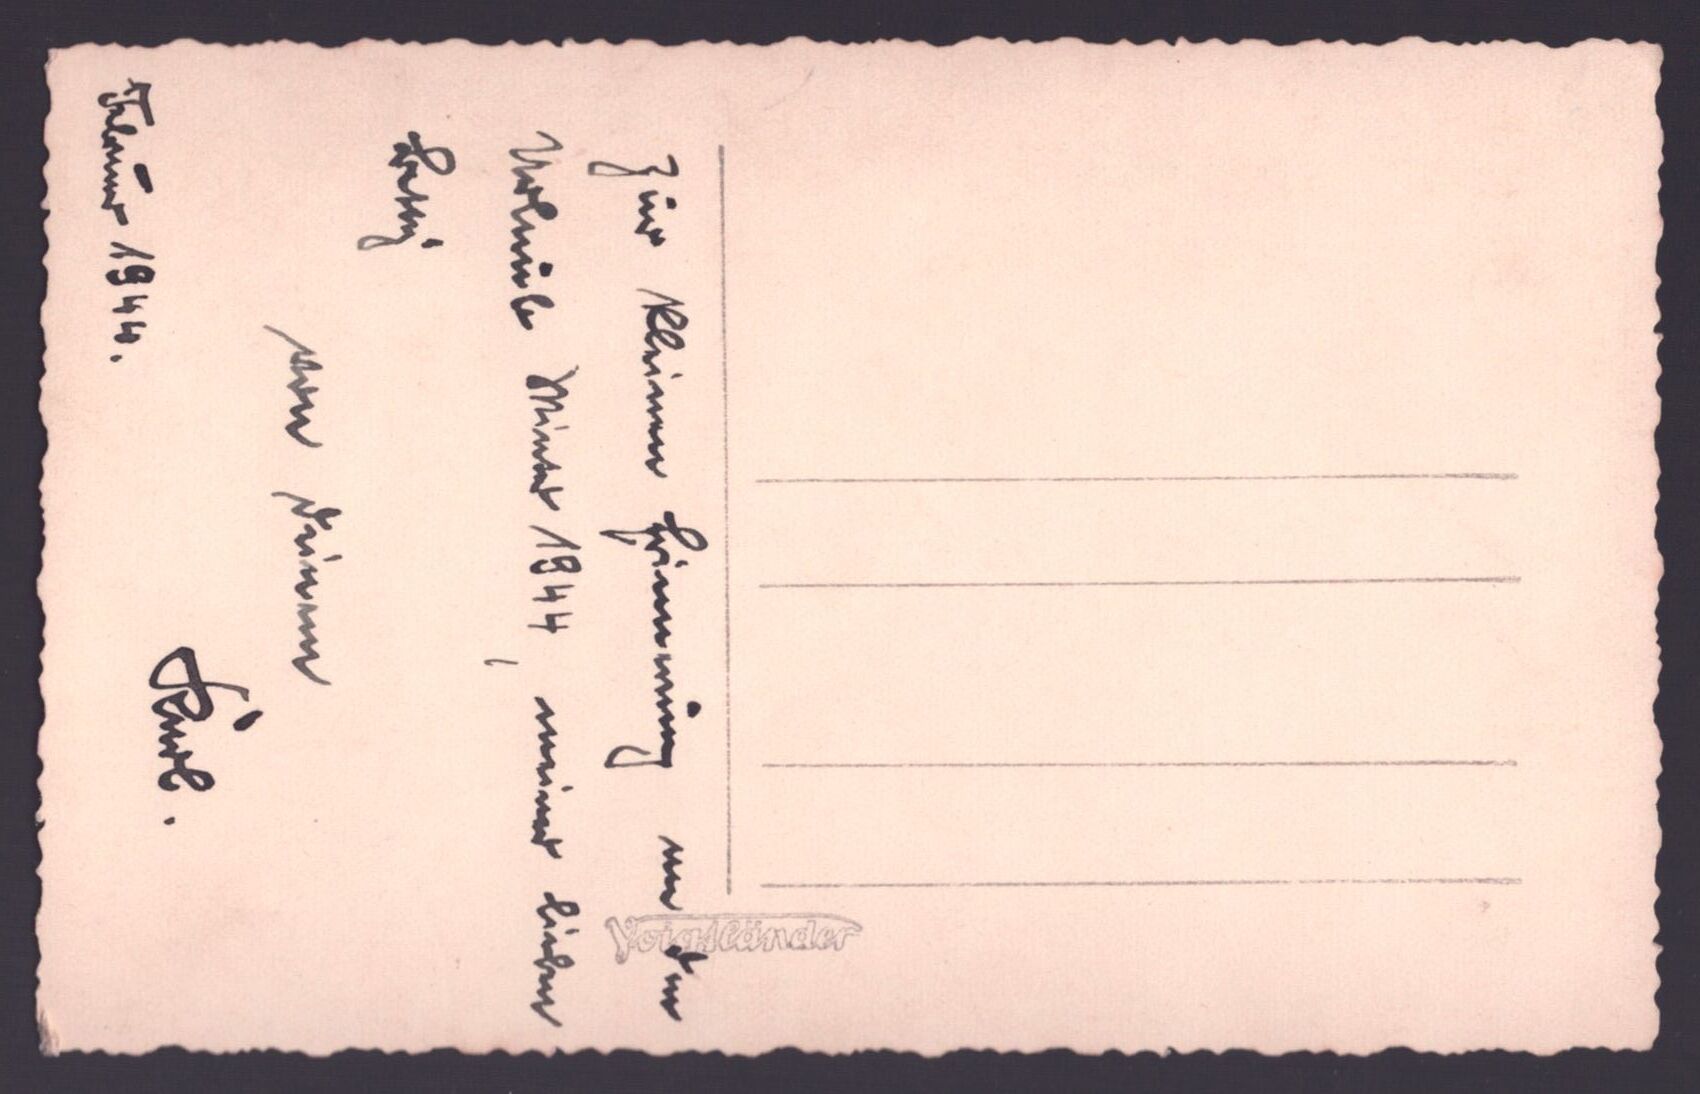 Zur kleinen Erinnerung an den
Urlaub Winter 1944, meiner lieben
von Deinem
Karl.
Februar 1944.
Voigtländer